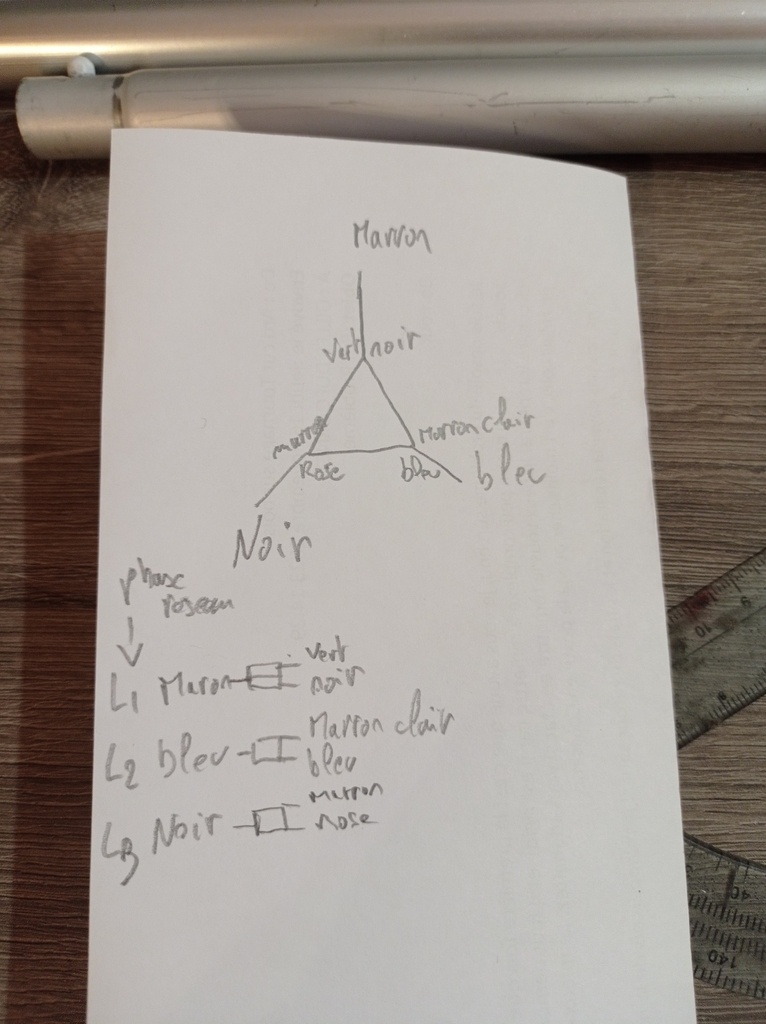 Marron
Vert noir
marron
Marron clair
Rose
bleu
bleu
Noir
phase
reseau
L1 Maron
vert
noir
L2 bleu
Marron clair
bleu
L3 Noir
marron
rose
9
10
40
140